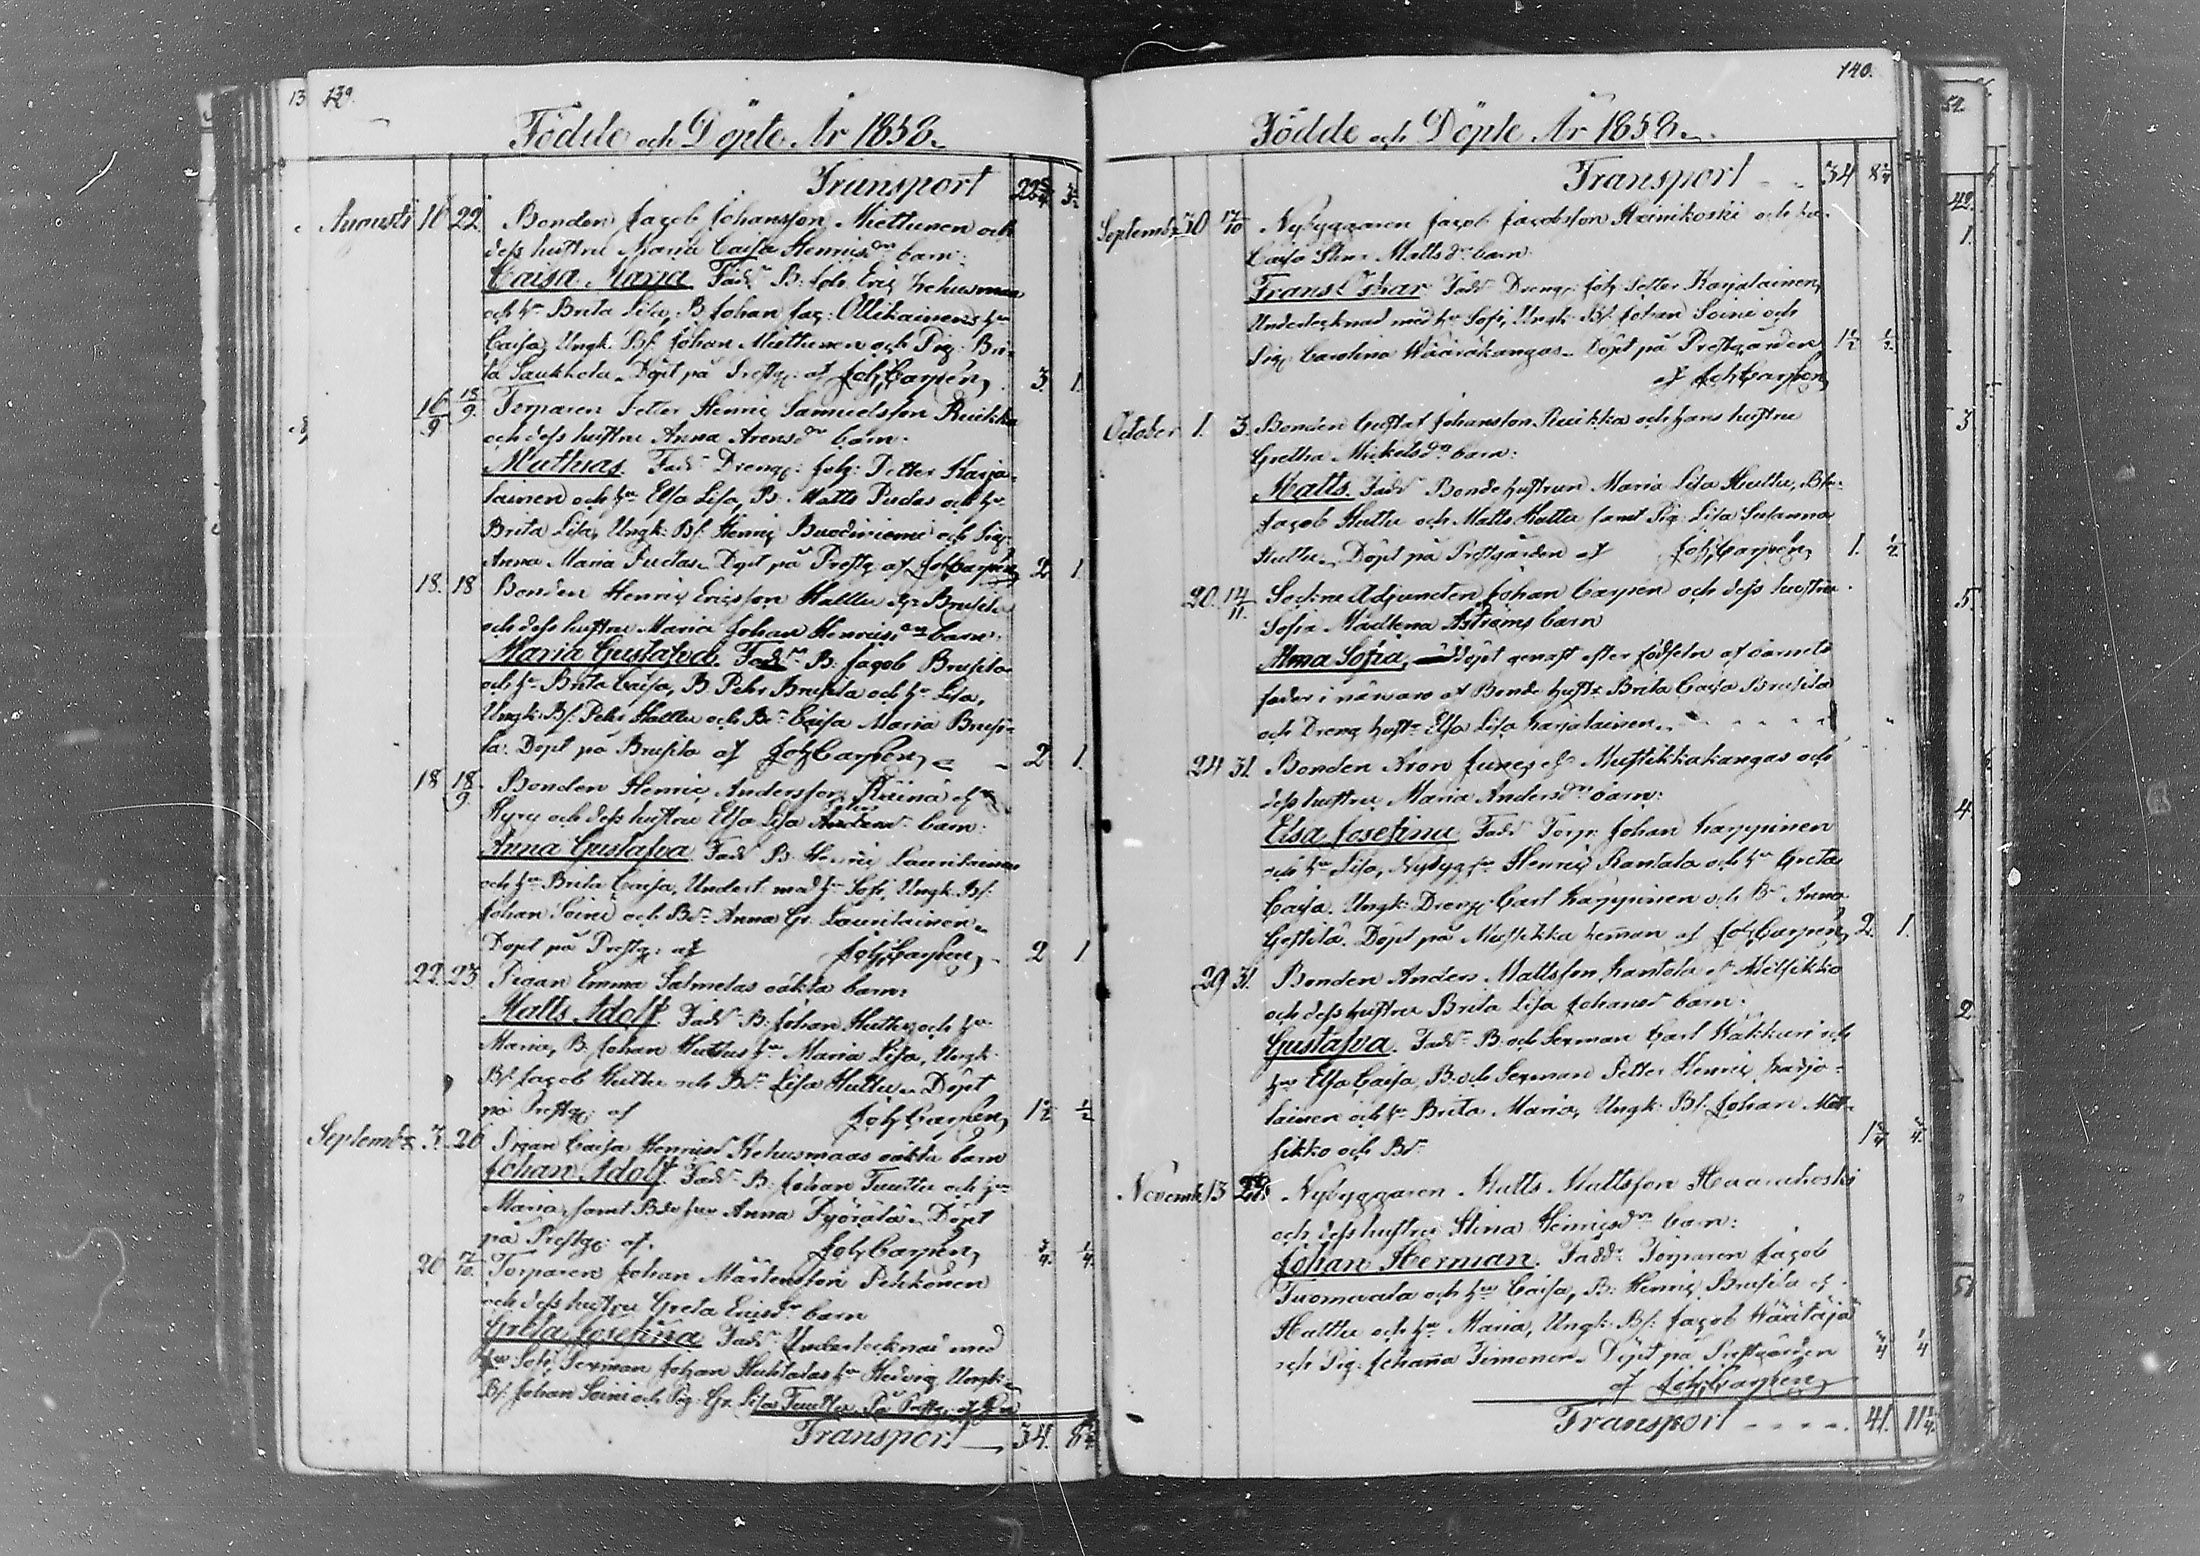 139.
Födde och Döpte År 1858.
Transport 22 3/4
Augusti 16 22. Bonden Jacob Johansson Miettunen och
dess hustru Maria Caisa Henricsdr barn:
Caisa Maria. Fadd. B: Joh: Eric Kehusmaa
och hu Brita Lisa, B. Johan Jac: Ollikainens hu
Caisa, Ungk. Bs: Johan Miettunen och Pig: Bri-
ta Saukkola. Döpt på Prestg: af Joh Carpén, 3. 1.
16/9 19/9. Torparen Petter Henric Samuelsson Ruikka
och dess hustru Anna Arensdr barn:
Mathias. Fadd. Dreng: Joh: Petter Karja-
lainen och hu Elsa Lisa, B. Matts Pudas och hu
Brita Lisa, Ungk: Bs: Henric och Pig:
Anna Maria Pudas. Döpt på Prestg. af Joh Carpén 2 1.
18. 18 Bonden Henric Ericsson Halttu Brusila
och dess hustru Maria Johan Henricsdr barn:
Maria Gustafva. Fadd. B: Jacob Brusila
och hu Brita Caisa, B. Pehr Brusila och hu Lisa,
Ungk: Bs: Pehr Halttu och Bdr Caisa Maria Brusi-
la: Döpt på Brusila af Joh Carpén, 2 1.
18 18/9. Bonden Henric Andersson Räina
Hyry och dess hustru Elsa Lisa barn:
Anna Gustafva Fadd B. Henric Laurikainen
och hu Brita Caisa, Undert. med hu Sofi, Ungk. Bs:
Johan Soini och Bdr Anna Gr. Laurikainen.
Döpt på Prestg: af Joh Carpén, 2 1
22. 23. Pigan Emma Salmelas oäkta barn:
Matts Adolf. Fadd B: Johan Huttu och hu
Maria, B. Johan Huttus hu Maria Lisa, Ungk.
Bs: Jacob Huttu och Bdr Lisa Huttu. Döpt
på Prestg: af Joh Carpén, 1 1/2 1/2
Septemb: 3. 26 Pigan Caisa Henricsd Kehusmaas oäkta barn
Johan Adolf. Fadd. B: Johan Tuuttu och hu
Maria, samt Bdehu Anna Pyörälä. Döpt
på Prestg: af. Joh Carpén, 3/4 1/4.
26 17/10. Torparen Johan Mårtensson Pehkonen
och dess hustru Greta Ericsdr barn
Greta Josefina Fadd. Undertecknad med
hu Sofi, Sexman Johan Huhtalas hu Hedvig, Ungk:
Bs: Johan Soini och Pig: Gr. Lisa Tuuttu På Prestg. af
Transport 34. 8 1/4
140.
Födde och Döpte År 1858.
Transport 34 8 1/4
Septemb: 30 17/10 Nybyggaren Jacob Jacobsson Heinikoski och hu.
Caisa Stina Mattsdr barn
Frans Oskar Fadd Dreng: Joh: Petter Karjalainen,
Undertecknad med hu Sofi, Ungk: Bs: Johan Soini och
Pig: Carolina Wääräkangas. Döpt på Prestgården 1 1/2 1/2.
af Joh Carpén,
October 1. 3. Bonden Gustaf Johansson Ruikka och hans hustru
Gretha Mickelsdr barn:
Matts. Fadd Bondehustrun Maria Lisa Huttu, Bs:
Jacob Huttu och Matts Huttu samt Pig: Lisa Susanna
Huttu. Döpt på Prestgården af Joh Carpén, 1. 1/2
20. 14/11. Sockne Adjuncten Johan Carpén och dess hustru
Sofia Madlena Åströms barn
Alma Sofia, döpt genast efter födseln af barnets
fader i närvaro af Bonde hustr. Brita Caisa Brusila
och Dreng hustr. Elsa Lisa Karjalainen.
24 31. Bonden Aron Mustikkakangas och
dess hustru Maria Andersdr barn:
Elsa Josefina Fadd Torp: Johan Karppinen
och hu Lisa, Nybyg Henric Rantala och hu Greta
Caisa. Ungk: Dreng: Carl Karppinen och Bdr Anna
Döpt på Mustikka heman af Joh Carpén, 2. 1.
29 31. Bonden Anders Mattsson Kantola Metsikkö
och dess hustru Brita Lisa Johansd barn:
Gustafva. Fadd. B. och Sexman Carl Wäkkuri och
hu Elsa Caisa, B. och Sexman Petter Henric Karja-
lainen och hu Brita Maria, Ungk: Bs: Johan Met-
sikkö och Bdr 1 3/4 3/4.
Novemb: 13 Nybyggaren Matts Mattsson
och dess hustru Stina Henricsdr barn:
Johan Herman. Fadd. Torparen Jacob
Tuomivaara och hu Caisa, B: Henric Brusila
Halttu och hu Maria, Ungk. Bs: Jacob Wäätäjä
och Pig: Johanna Timonen. Döpt på Prestgården 3/4 1/4
af Joh Carpén,
Transport 41. 11 1/4.